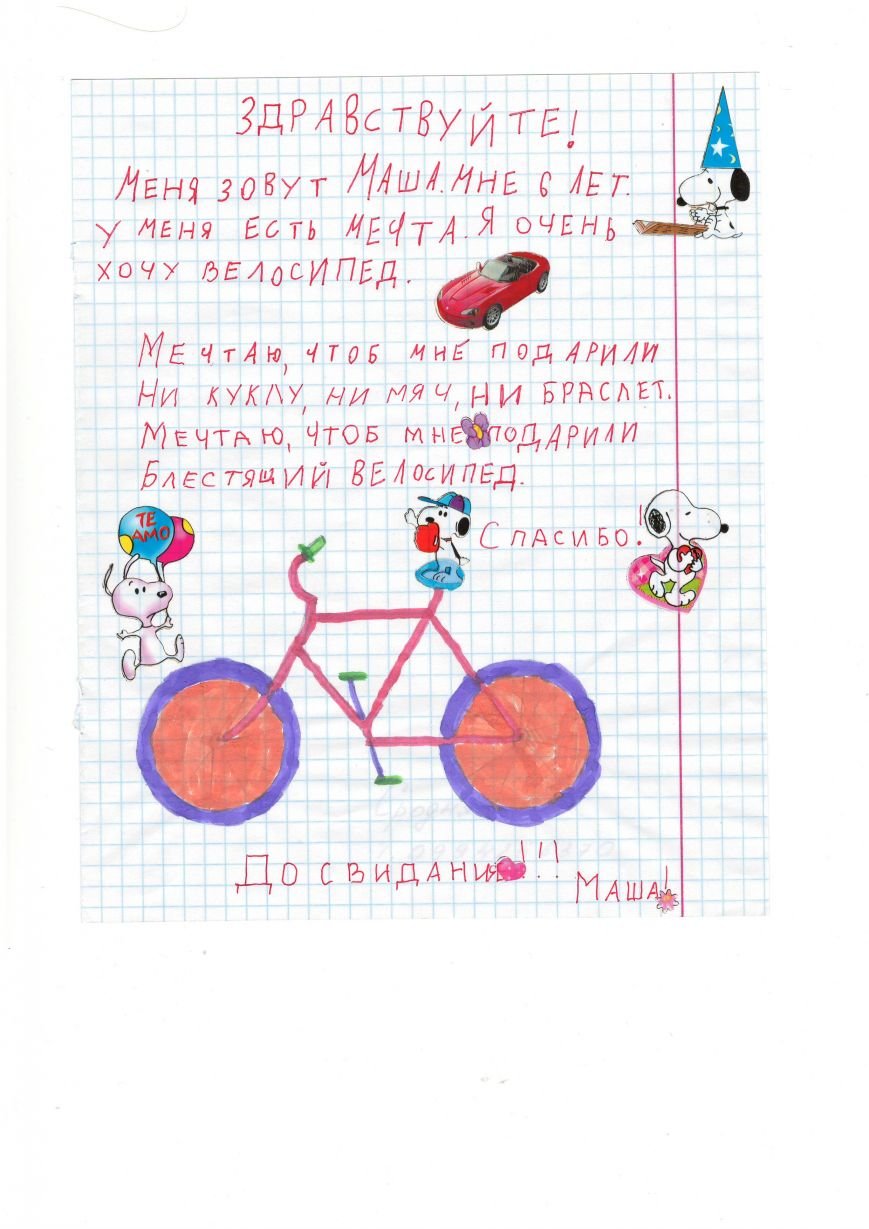 ЗДРАВСТВУЙТЕ!
МЕНЯ ЗОВУТ МАША. МНЕ 6 ЛЕТ.
У МЕНЯ ЕСТЬ МЕЧТА. Я ОЧЕНЬ
ХОЧУ ВЕЛОСИПЕД.
МЕЧТАЮ, ЧТОБ МНЕ ПОДАРИЛИ
НИ КУКЛУ, НИ МЯЧ, НИ БРАСЛЕТ.
МЕЧТАЮ, ЧТОБ МНЕ ПОДАРИЛИ
БЛЕСТЯЩИЙ ВЕЛОСИПЕД.
СПАСИБО!
TE
AMO
ДО СВИДАНИЯ!!!
МАША!